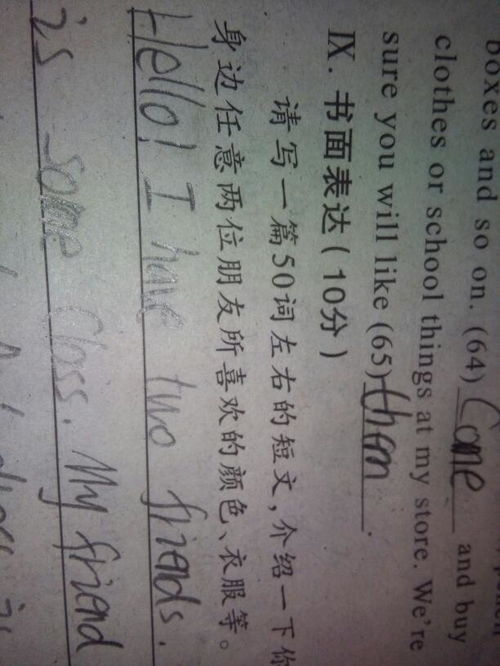 boxes and so on. (64) Come and buy
clothes or school things at my store. We're
sure you will like (65) them.
Ⅸ. 书面表达(10分)
请写一篇50词左右的短文,介绍一下你
身边任意两位朋友所喜欢的颜色、衣服等。
Hello! I have two friends.
is some Class. My friend